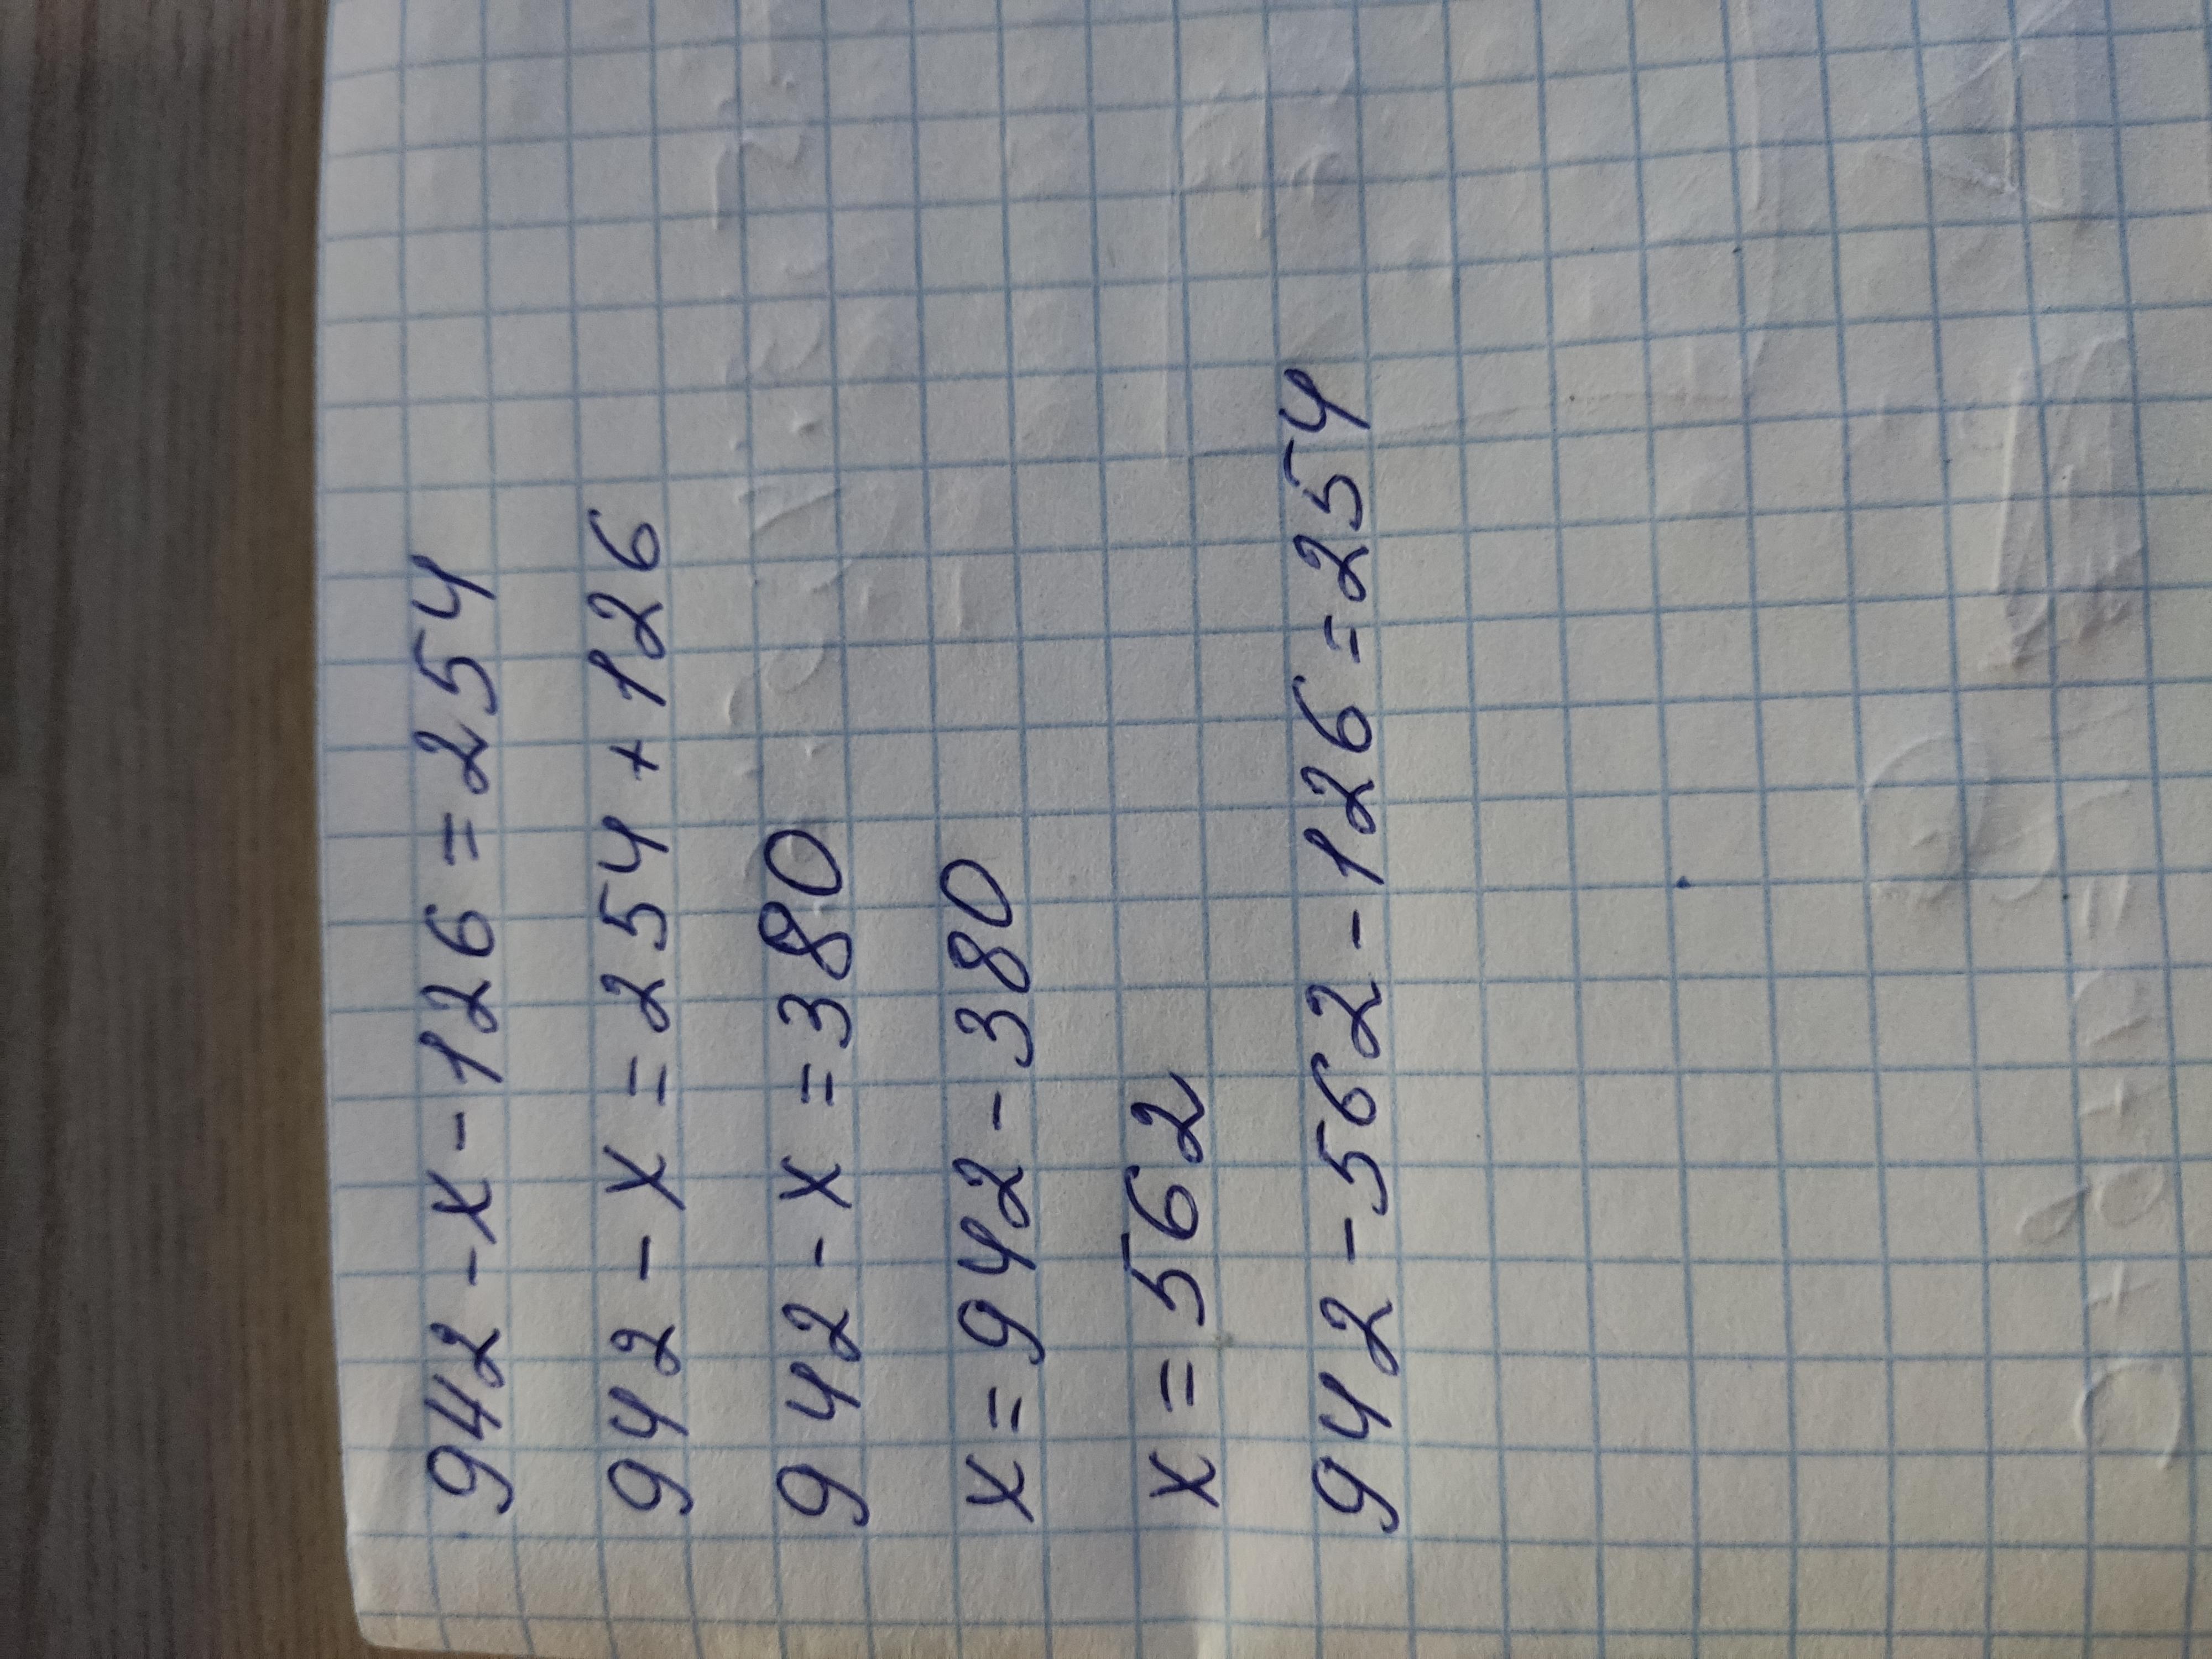 942-x-126=254
942-x=254+126
942-x=380
x=942-380
x=562
942-562-126=254